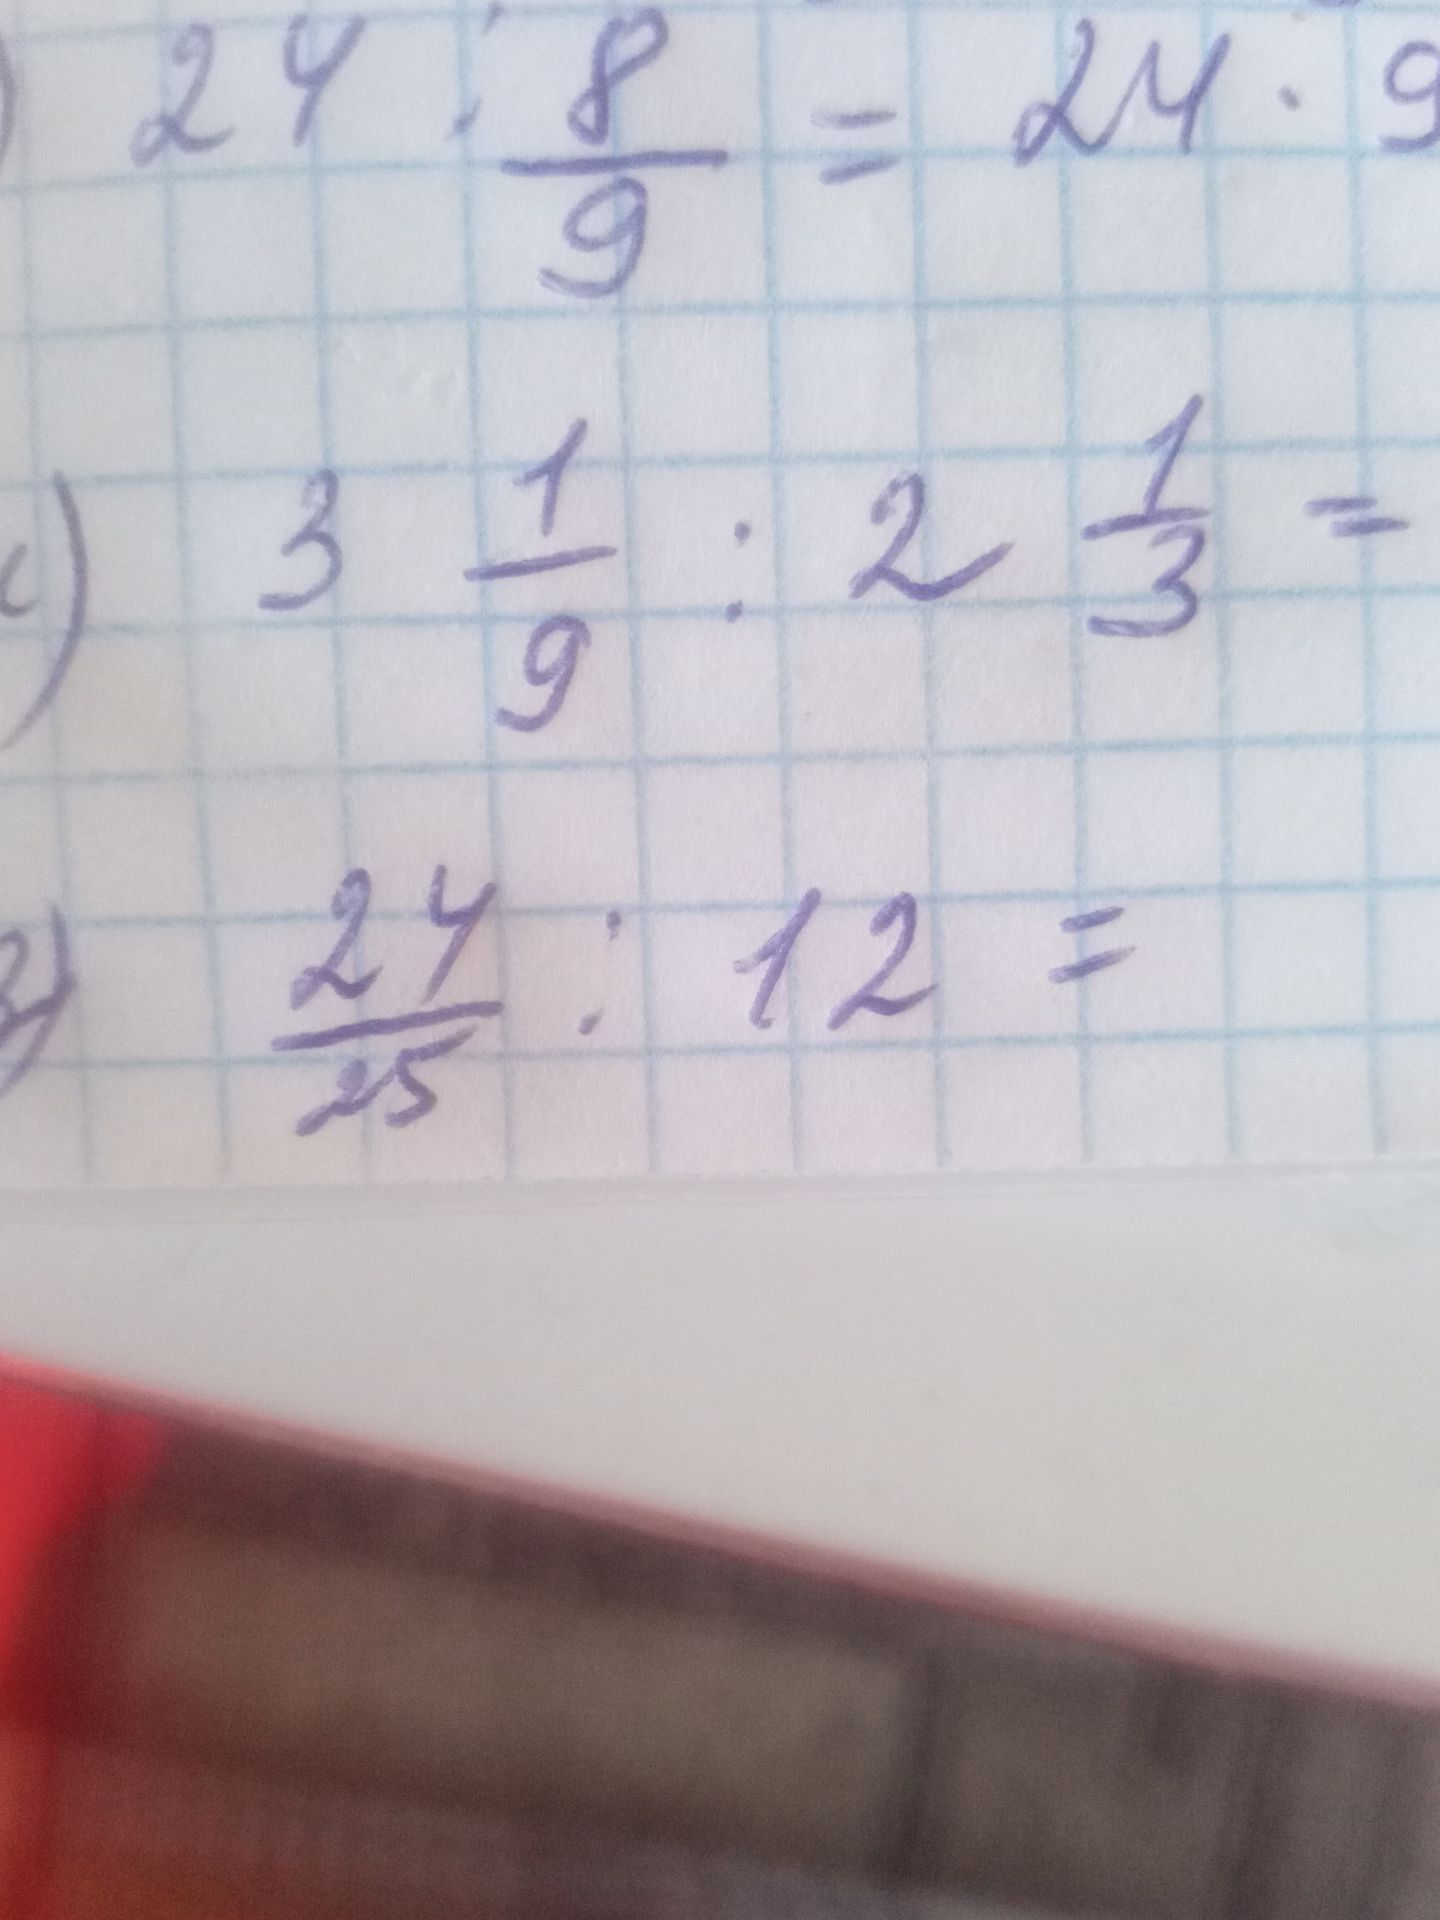 ) 24 : 8/9 = 24 · 9
) 3 1/9 : 2 1/3 =
з) 24/25 : 12 =